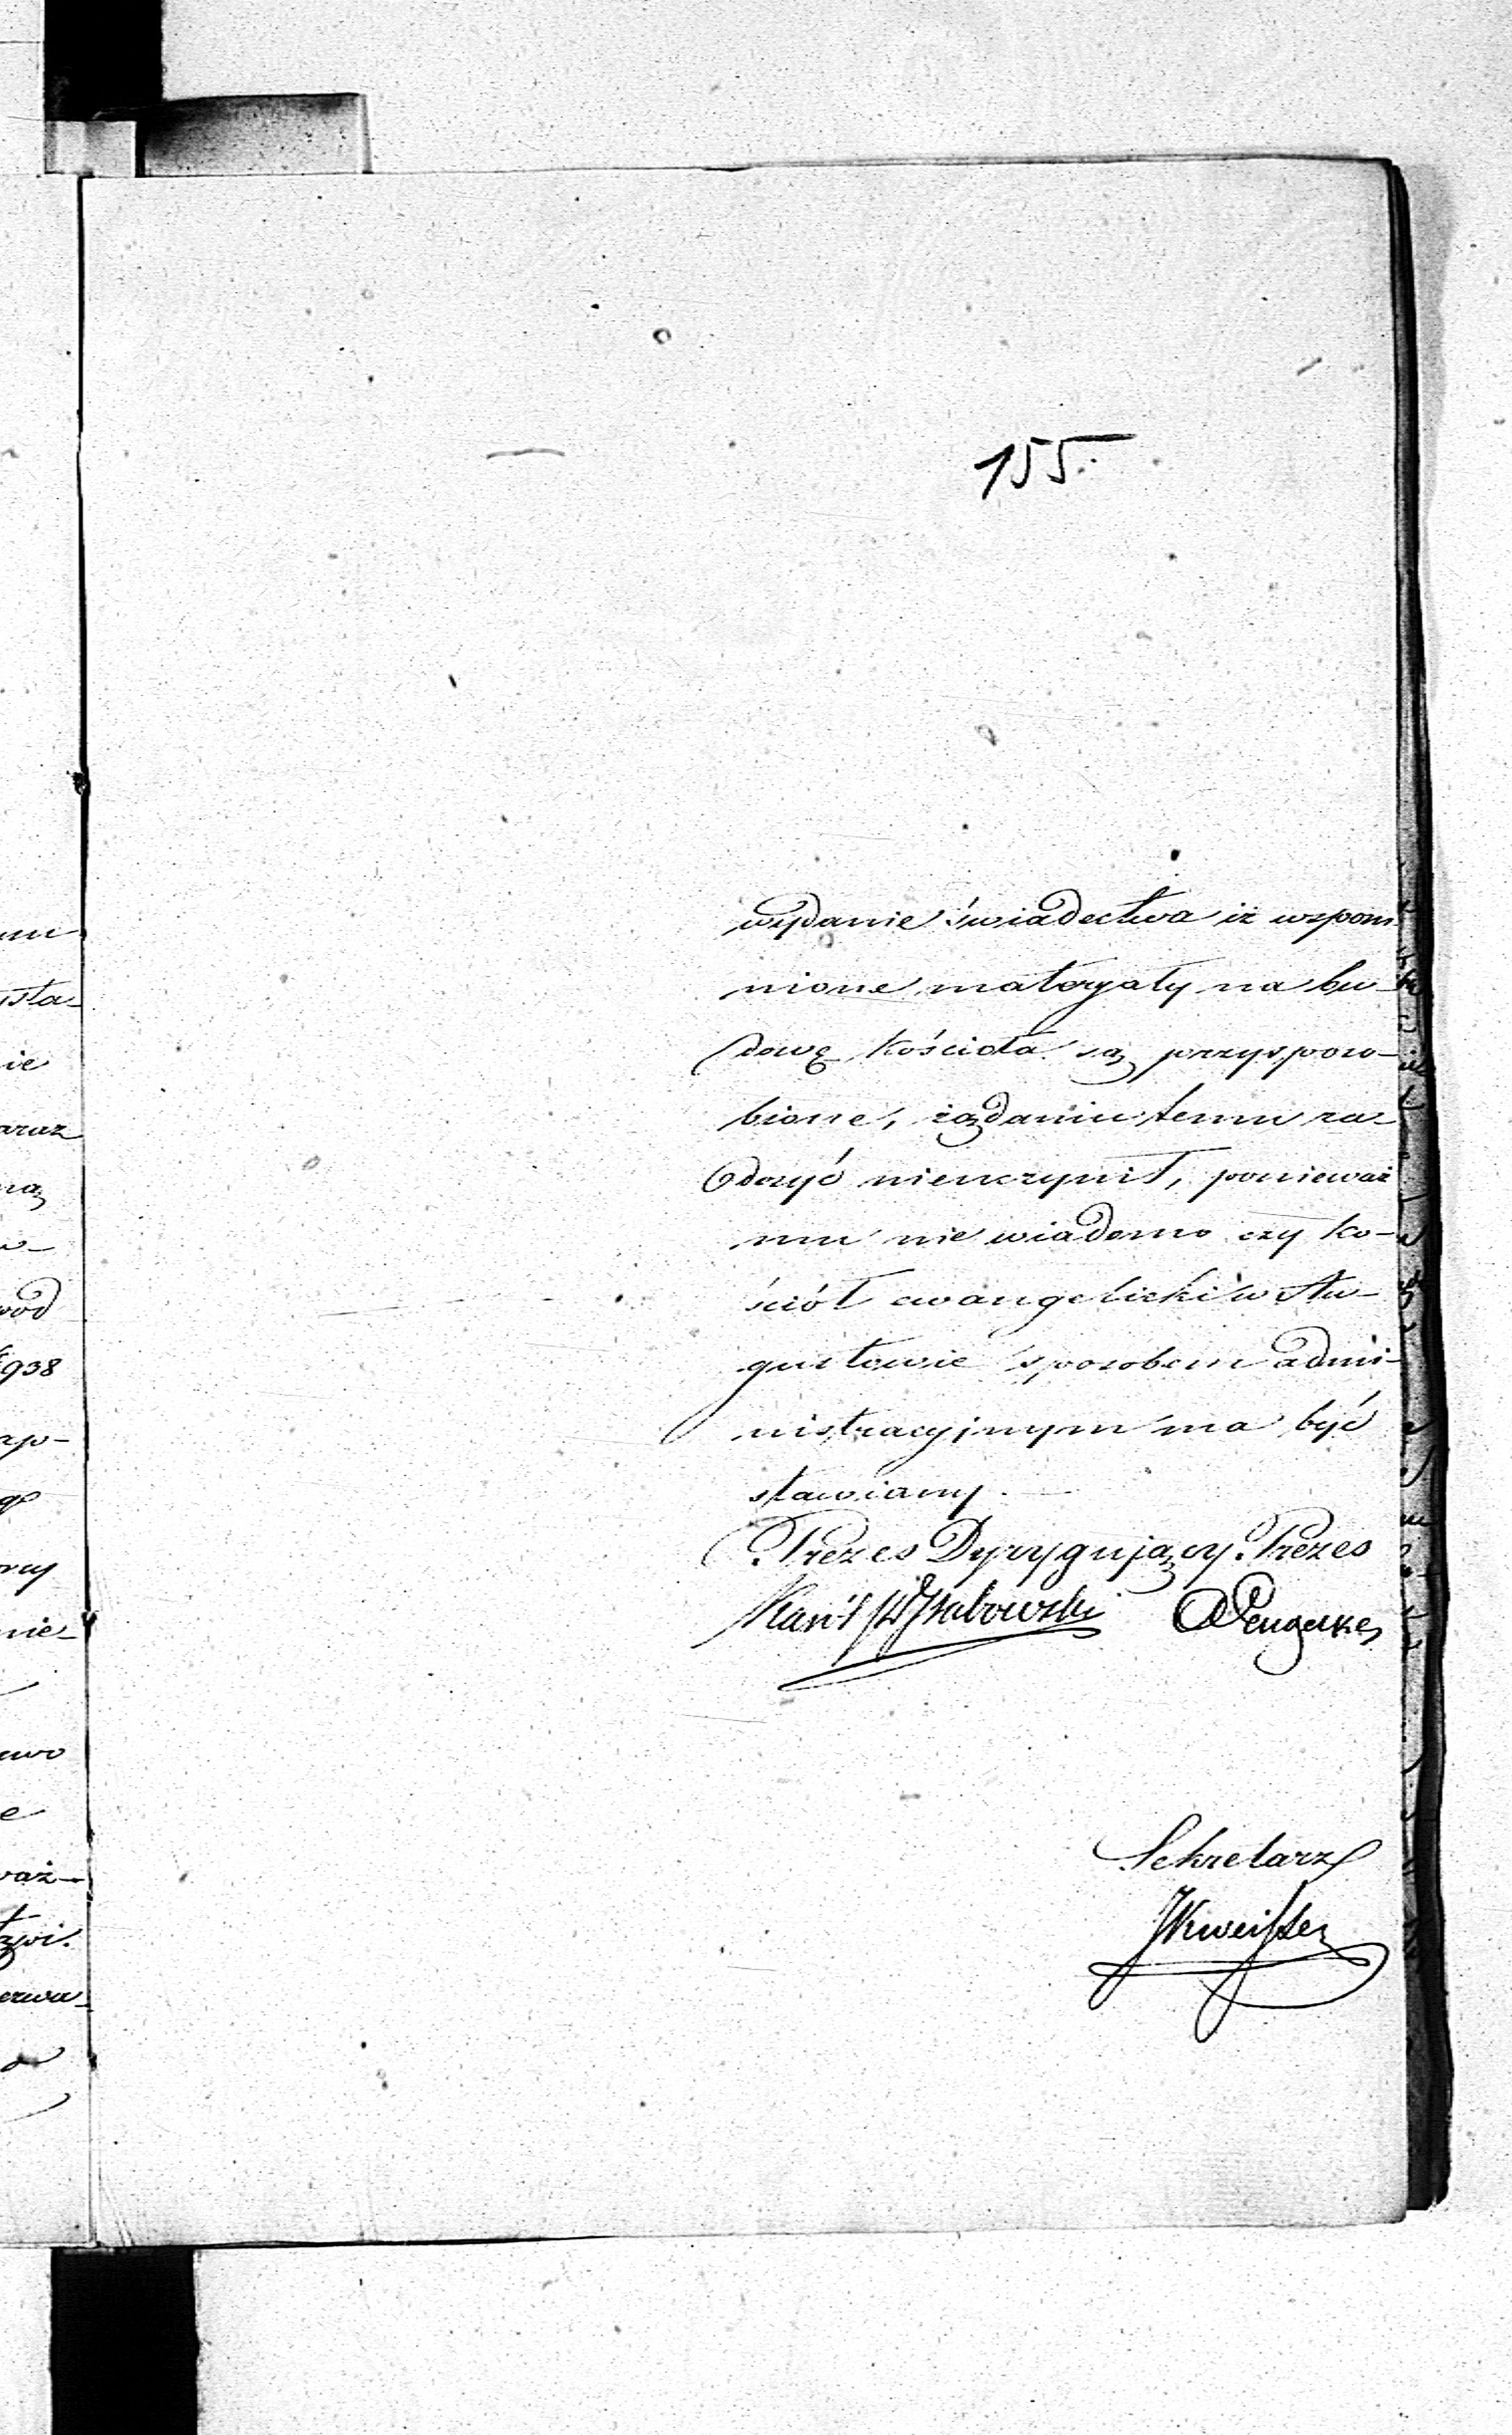 155.
wydanie świadectwa iż wspom
nione materyały na bu-
dowę kościoła są przysposo-
bione, żądaniu temu za-
dosyć nieuczynił, ponieważ
mu nie wiadomo czy ko-
ściół ewangelicki w Au-
gustowie sposobem admi-
nistracyjnym ma być
stawiany.
Prezes Dyrygujący. Prezes
Sekretarz